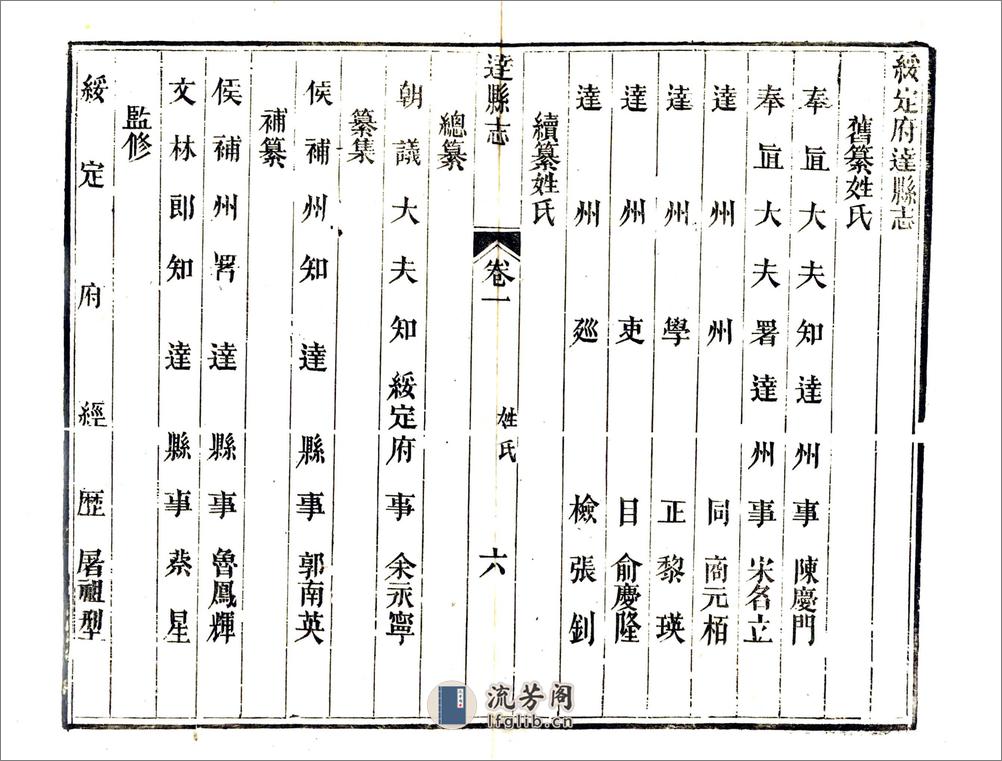 綏定府達縣志
舊纂姓氏
奉旨大夫知達州事陳慶門
奉旨大夫署達州事宋名立
達州州同商元栢
達州學正黎瑛
達州吏目俞慶隆
達州廵檢張釗
續纂姓氏
達縣志 卷一 姓氏 六
總纂
朝議大夫知綏定府事余永寧
纂集
候補州知達縣事郭南英
補纂
候補州署達縣事魯鳳輝
文林郎知達縣事蔡星
監修
綏定府經歷屠祖型
流芳阁
lfglib.cn